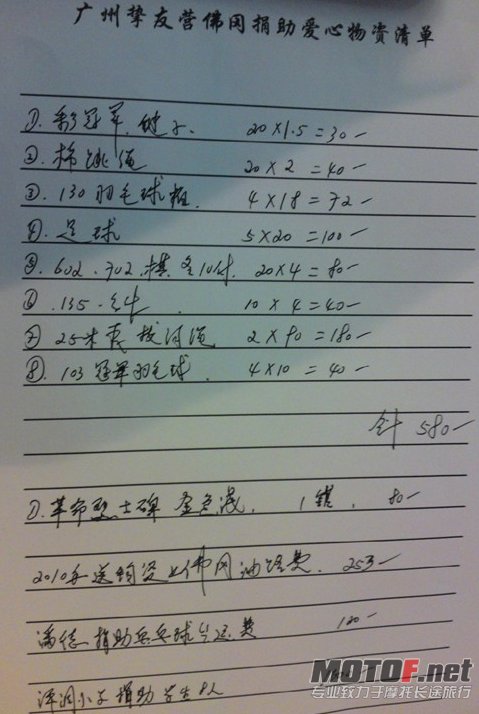 广州挚友营佛冈捐助爱心物资清单
①. 彩冠军. 毽子. 20×1.5=30-
②. 棉跳绳 20×2=40-
③. 130羽毛球拍. 4×18=72-
④. 足球 5×20=100-
⑤. 602.702.棋各10付. 20×4=80-
⑥. 135. 10×4=40-
⑦. 25米 拔河绳 2×90=180-
⑧. 103冠军羽毛球. 4×10=40-
计 580-
①. 革命烈士碑 金色漆. 1罐. 80-
2010年送物资 佛冈油路费. 253-
捐助乒乓球台运费 100-
洋洞小子捐助学生8人
MOTOF.net
专业致力于摩托长途旅行